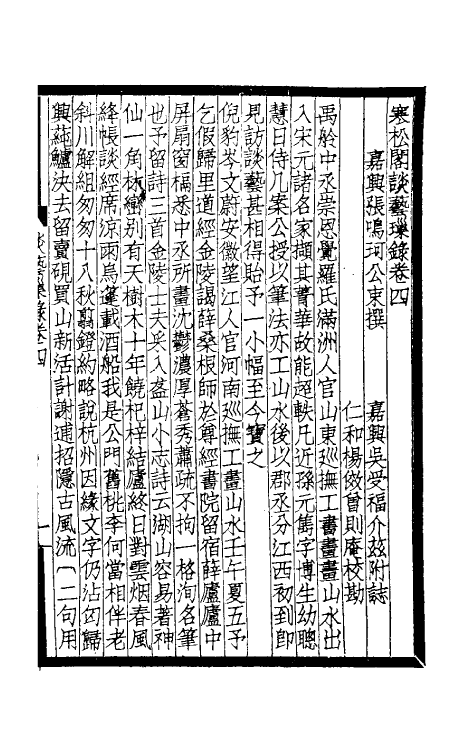 寒松閣談藝璅錄卷四
嘉興張鳴珂公束撰
嘉興吳受福介茲附誌
仁和楊儆曾則庵校勘
禹舲中丞崇恩覺羅氏滿洲人官山東巡撫工書畫畫山水出
入宋元諸名家擷其菁華故能超軼凡近孫元篤字博生幼聰
慧日侍几案公授以筆法亦工山水後以郡丞分江西初到即
見訪談藝甚相得貽予一小幅至今寶之
倪豹岑文蔚安徽望江人官河南巡撫工畫山水壬午夏五予
乞假歸里道經金陵謁薛桑根師於尊經書院留宿薛廬廬中
屏扇窗槅悉中丞所畫沈鬱濃厚蒼秀蕭疏不拘一格洵名筆
也予留詩三首金陵士夫采入盋山小志詩云湖山容易著神
仙一角林巒別有天樹木十年饒杞梓結廬終日對雲烟春風
絳帳談經席涼雨烏篷載酒船我是公門舊桃李何當相伴老
斜川解組匆匆十八秋翦鐙約略說杭州因緣文字仍沾匄歸
興蒓鱸決去留賣硯買山新活計謝逋招隱古風流〔二句用
談藝璅錄卷四
一